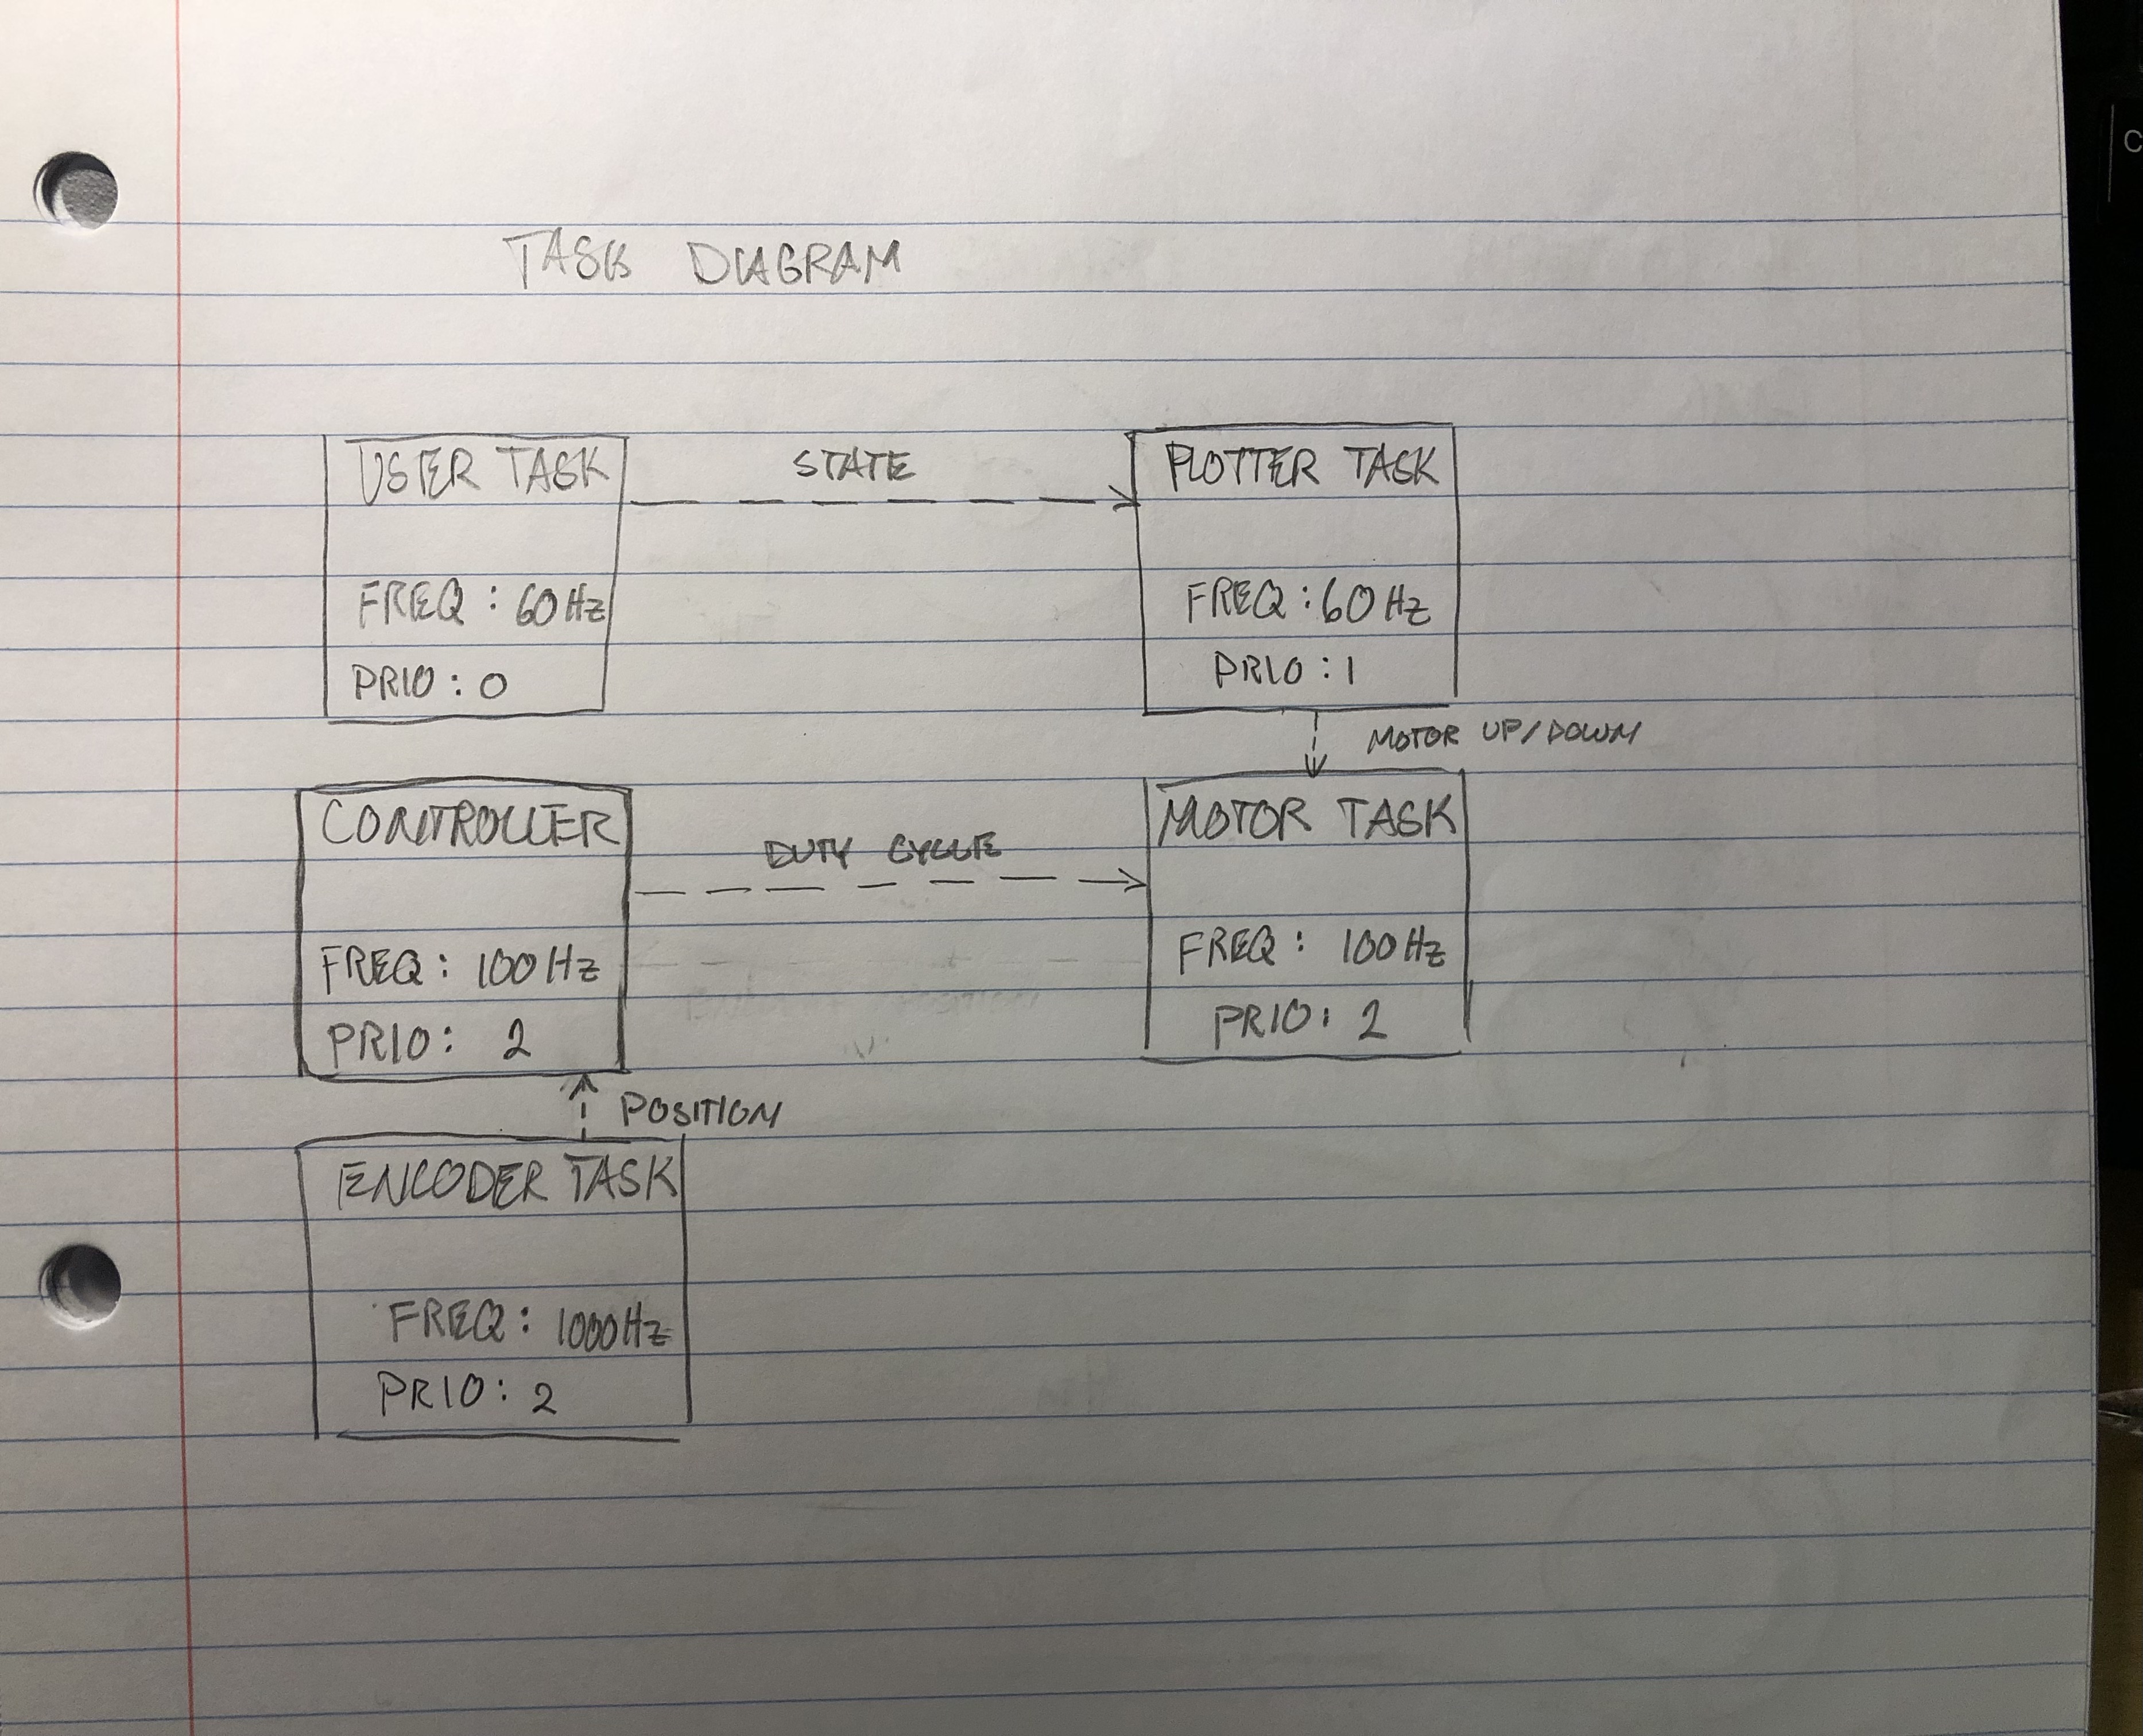 TASK DIAGRAM
USER TASK
FREQ : 60 Hz
PRIO : 0
STATE
PLOTTER TASK
FREQ : 60 Hz
PRIO : 1
MOTOR UP/DOWN
CONTROLLER
FREQ : 100 Hz
PRIO : 2
DUTY CYCLE
MOTOR TASK
FREQ : 100 Hz
PRIO : 2
POSITION
ENCODER TASK
FREQ : 1000 Hz
PRIO : 2
C